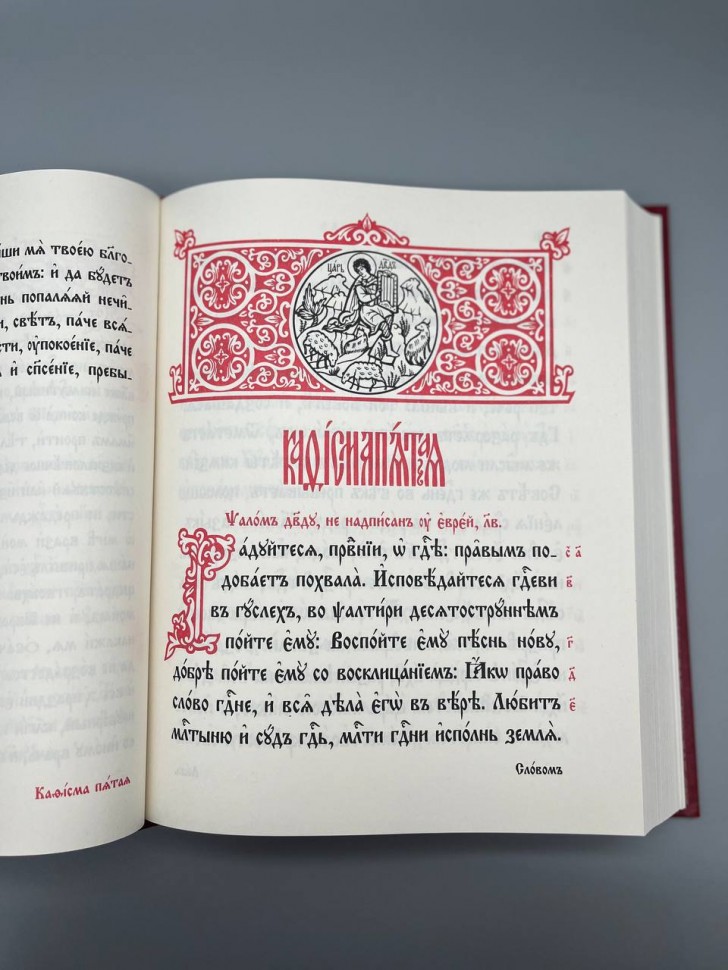 ши мѧ̀ твоє́ю бл҃го_
твои́мъ: и҆ да бу́детъ
нь попалѧ́ѧй нечи_
и, свѣ́тъ, па́че всѧ_
сти, ᲂу҆покое́нїе, па́че
и҆ сп҃се́нїе, пребы_
Каѳі́сма пѧ́таѧ
ЦАРЬ ДВ҃ДЪ
КАѲІ́СМА ПѦ́ТАѦ
Ѱало́мъ дв҃ду, не надпи́санъ ᲂу҆ є҆вре́й, л҃в.
Ра́дуйтесѧ, првⷣнїи, ѡ҆ гдⷭ҇ѣ: пра̑вымъ по_ с҃ а҃
добаетъ похвала̀. И҆сповѣ́дайтесѧ гдⷭ҇еви в҃
въ гу́слехъ, во ѱалти́ри десѧтострꙋ́ннѣмъ
по́йте є҆мꙋ̀: Воспо́йте є҆мꙋ̀ пѣ́снь но́вꙋ, г҃
до́брѣ по́йте є҆мꙋ̀ со восклица́нїемъ: Ꙗ҆́кѡ пра́во д҃
сло́во гдⷭ҇не, и҆ всѧ̑ дѣла̀ є҆гѡ̀ въ вѣ́рѣ. Лю́битъ є҃
млⷭ҇тыню и҆ сꙋ́дъ гдⷭ҇ь, млⷭ҇ти гдⷭ҇ни и҆спо́лнь землѧ̀.
Сло́вомъ